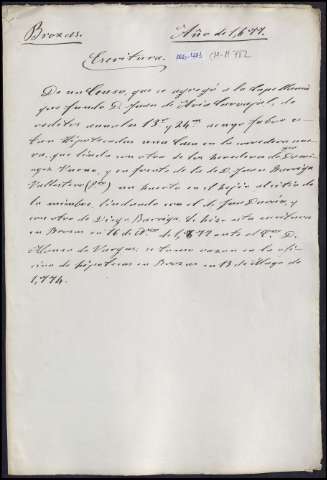 Brozas. Año de 1,677.
Escritura.
De un Censo, que se agregó a la Capellanía
que fundó D. Juan de Arias Carvajal, de
reditos anuales 13 r.s y 24 m.s a cuyo saber es
tan hipotecadas una Casa en la
que linda con otra de los herederos de Domin
guez Vaca, y en frente de la de D. Juan Barriga
Vallestero (pro) un huerto en el egido al sitio de
la mimbre, lindando con el de Juan García, y
con otro de Diego Barriga. Se hizo esta escritura
en Brozas en 16 de de 1,677 ante el D.
Alonso de Vargas, se tomó razon en la ofi
cina de hipotecas en Brozas en 13 de Mayo de
1,774.